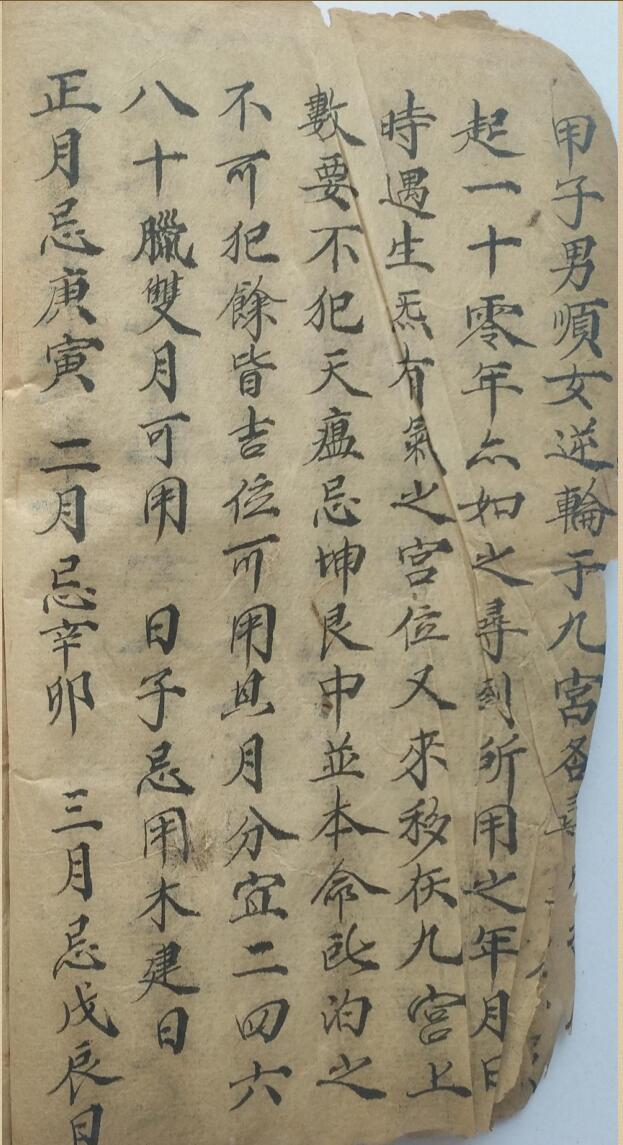 甲子男順女逆輪于九宮各尋
起一十零年亦如之尋到所用之年月日
時遇生炁有氣之宮位又來移在九宮上
數要不犯天瘟忌坤艮中並本命所泊之
不可犯餘皆吉位可用其月分宜二四六
八十臘雙月可用 日子忌用木建日
正月忌庚寅 二月忌辛卯 三月忌戊辰日